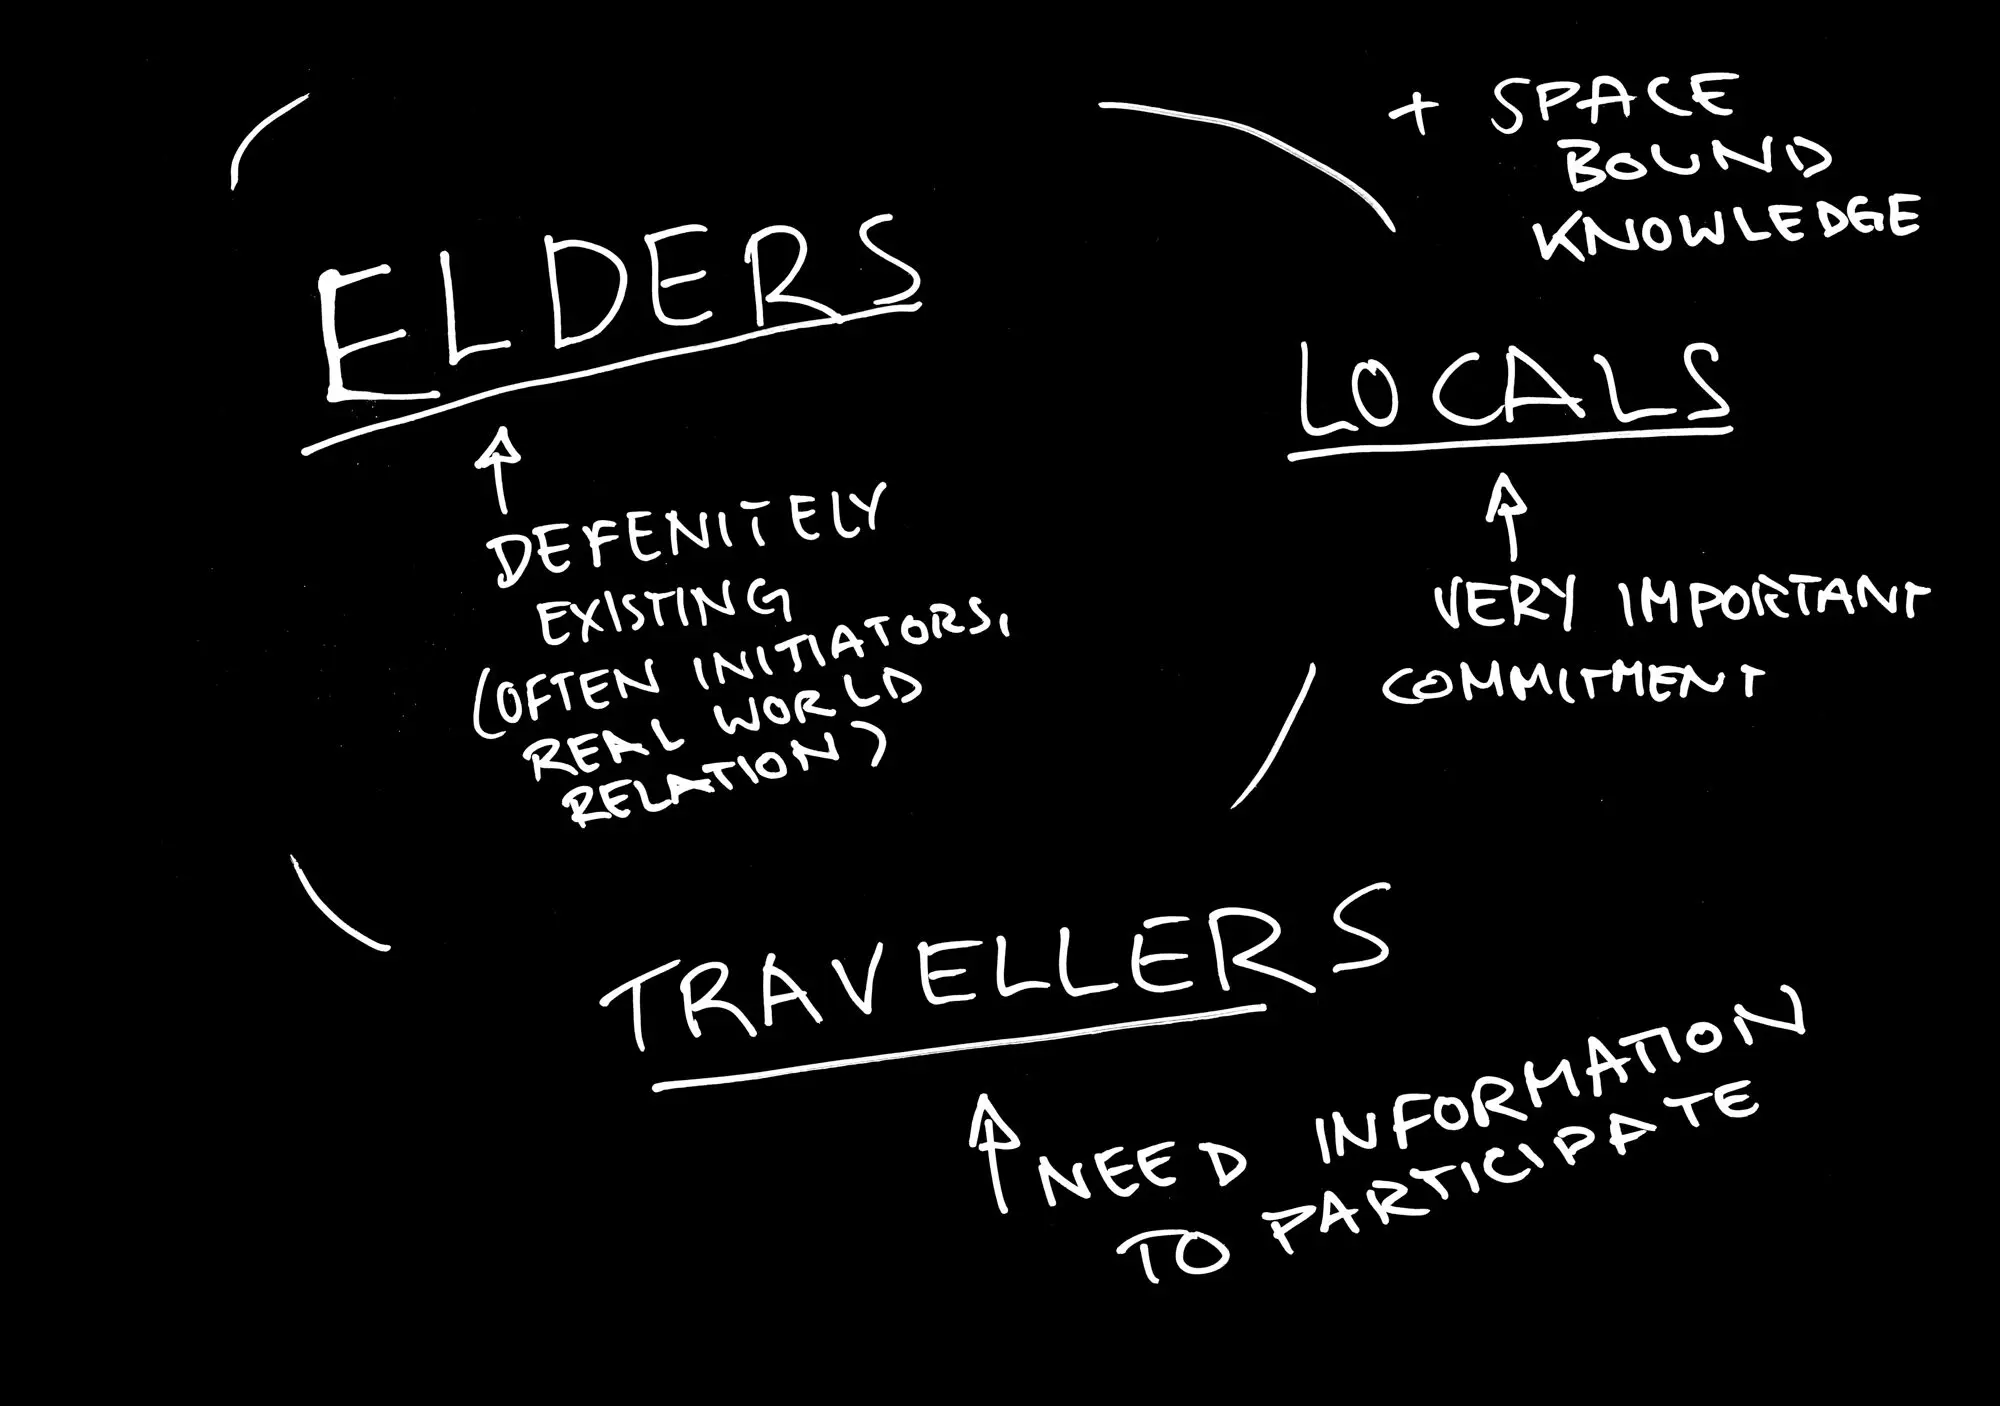 ELDERS
DEFENITELY
EXISTING
(OFTEN INITIATORS,
REAL WORLD
RELATION)
+ SPACE
BOUND
KNOWLEDGE
LOCALS
VERY IMPORTANT
COMMITMENT
TRAVELLERS
NEED INFORMATION
TO PARTICIPATE